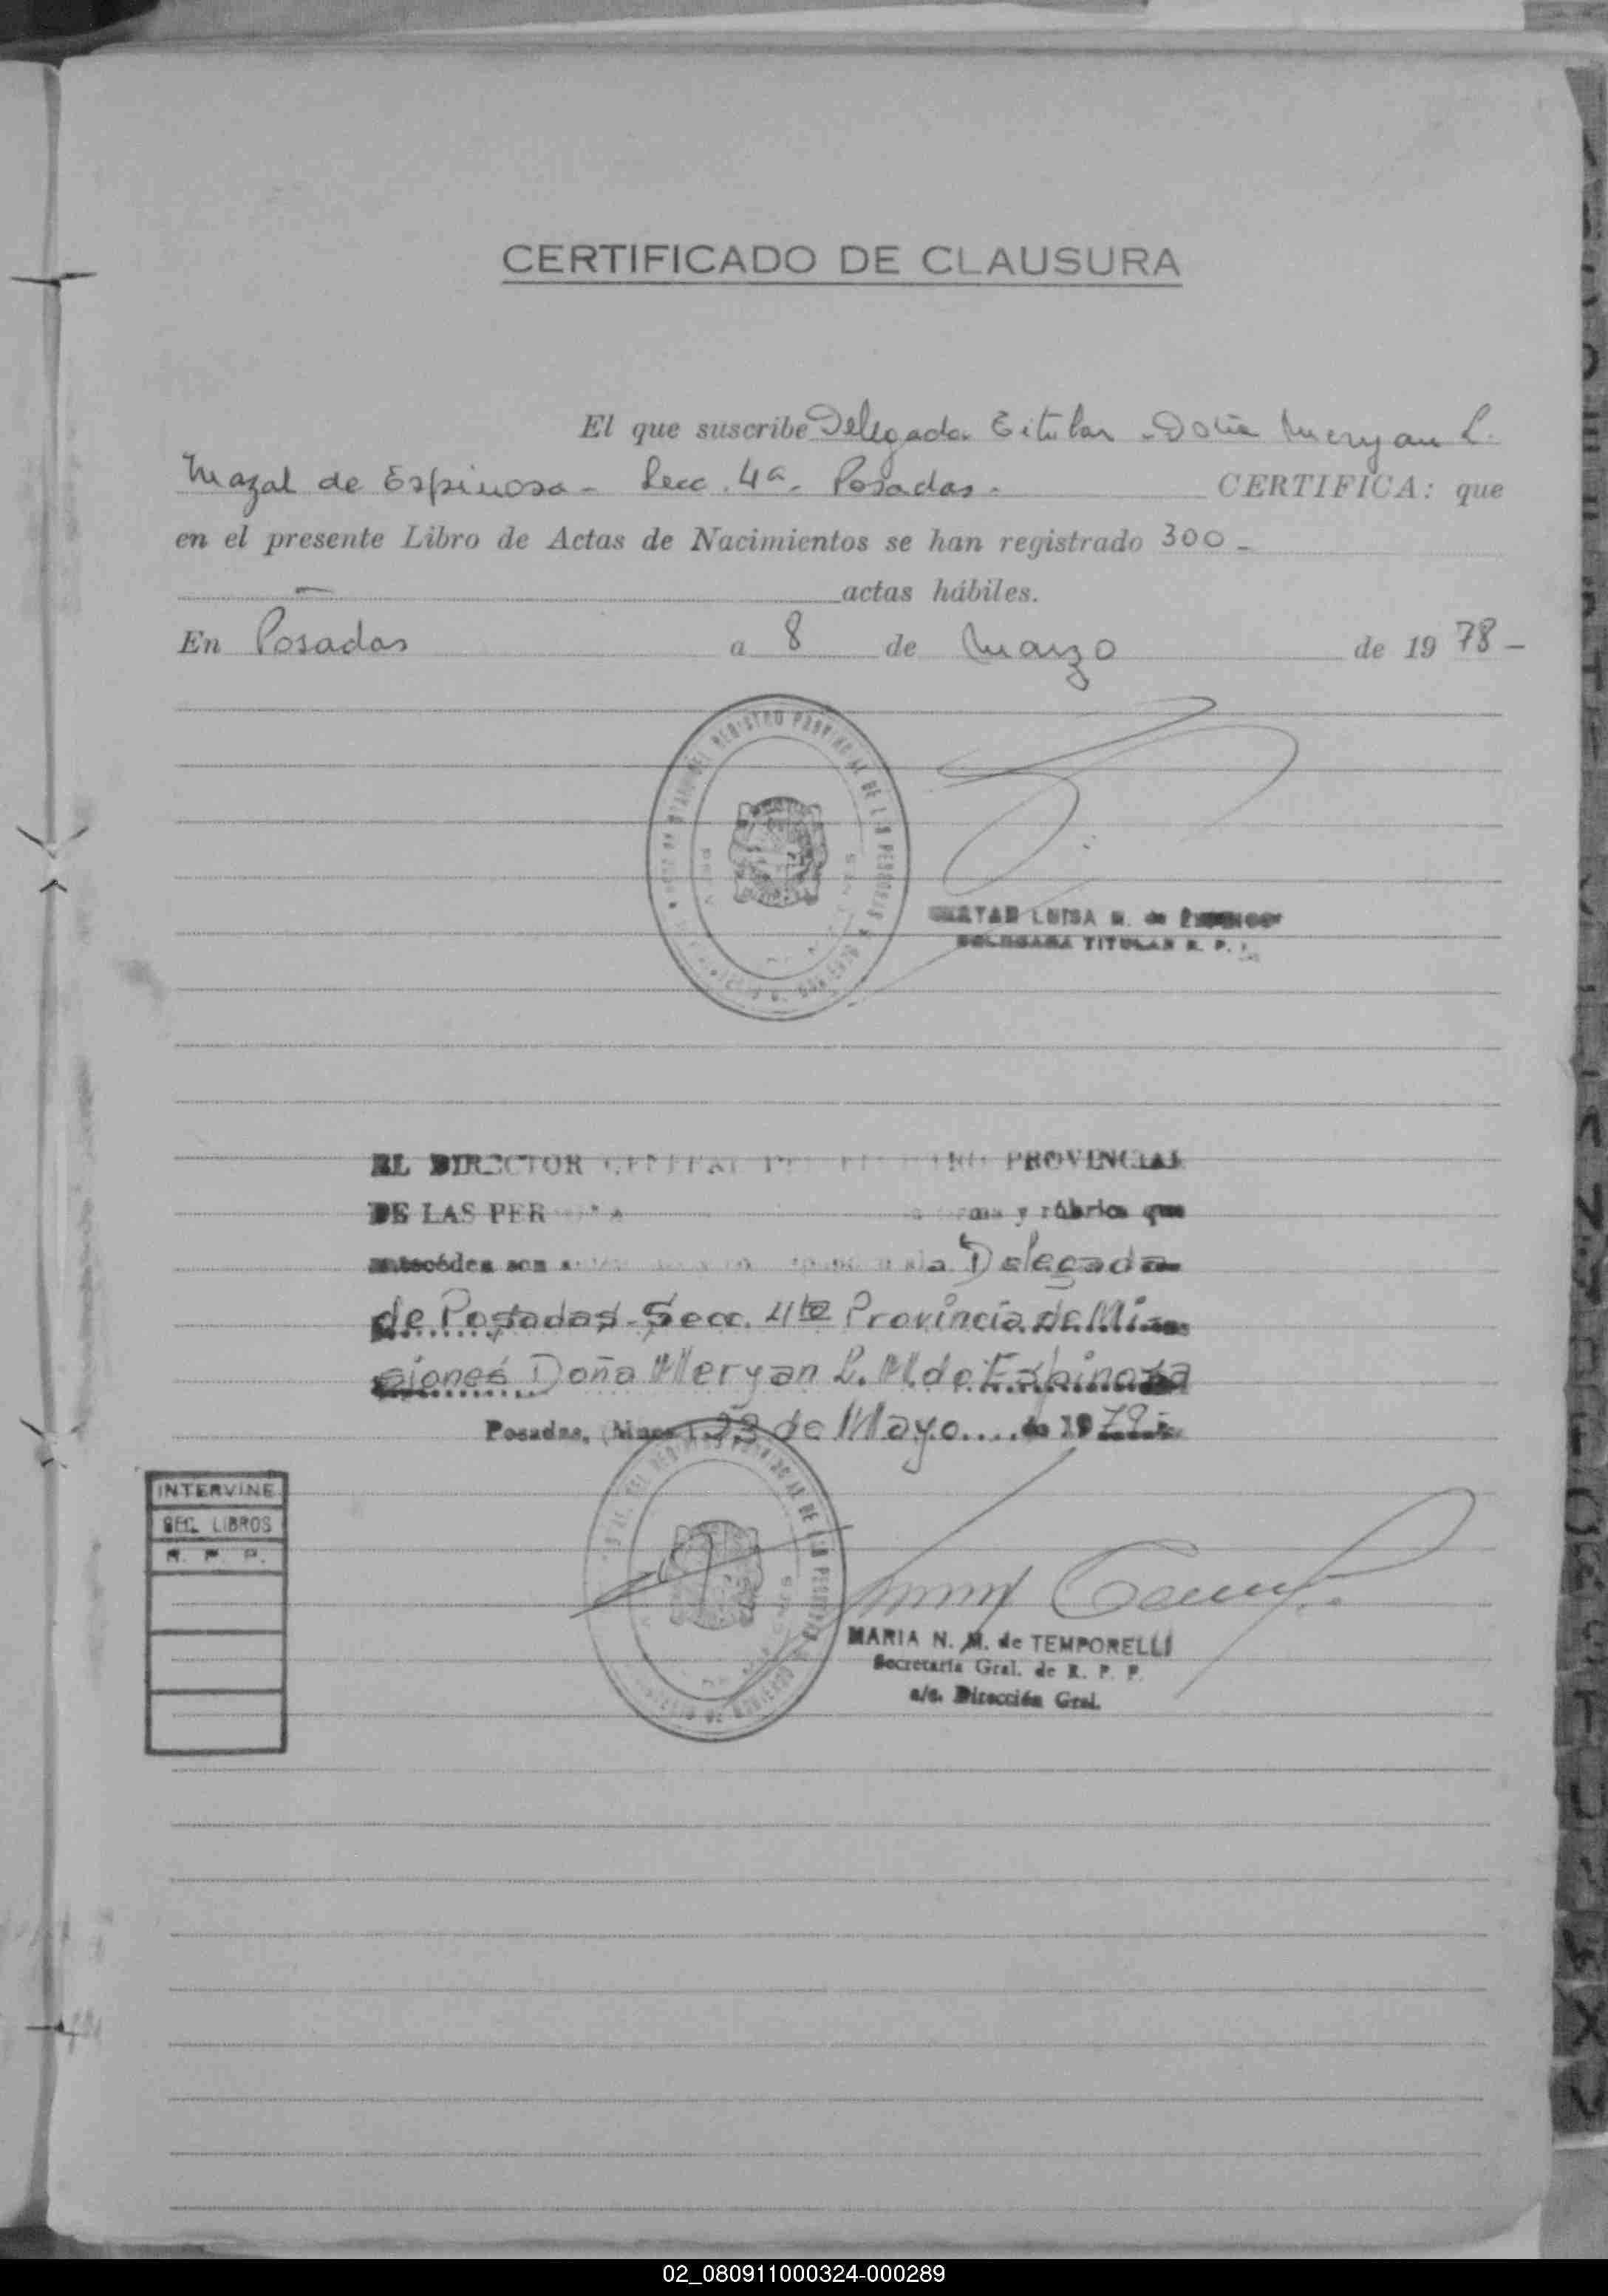 CERTIFICADO DE CLAUSURA
El que suscribe Delegada Titular - Doña Meryan L.
Mazal de Espinosa - Secc. 4a. Posadas. CERTIFICA: que
en el presente Libro de Actas de Nacimientos se han registrado 300 -
actas hábiles.
En Posadas a 8 de Marzo de 1978 -
LUISA M. de
DELEGADA TITULAR R. P.
EL DIRECTOR GENERAL DEL PROVINCIAL
DE LAS PER firma y rúbrica que
anteceden son a la Delegada
de Posadas - Secc. 4ta Provincia de Mi-
siones Doña Meryan L. M. de Espinosa
Posadas, (Mnes.) 23 de Mayo de 1979.-
INTERVINE
SEC. LIBROS
R. P. P.
MARIA N. M. de TEMPORELLI
Secretaria Gral. de R. P. P.
a/c. Dirección Gral.
02_080911000324-000289